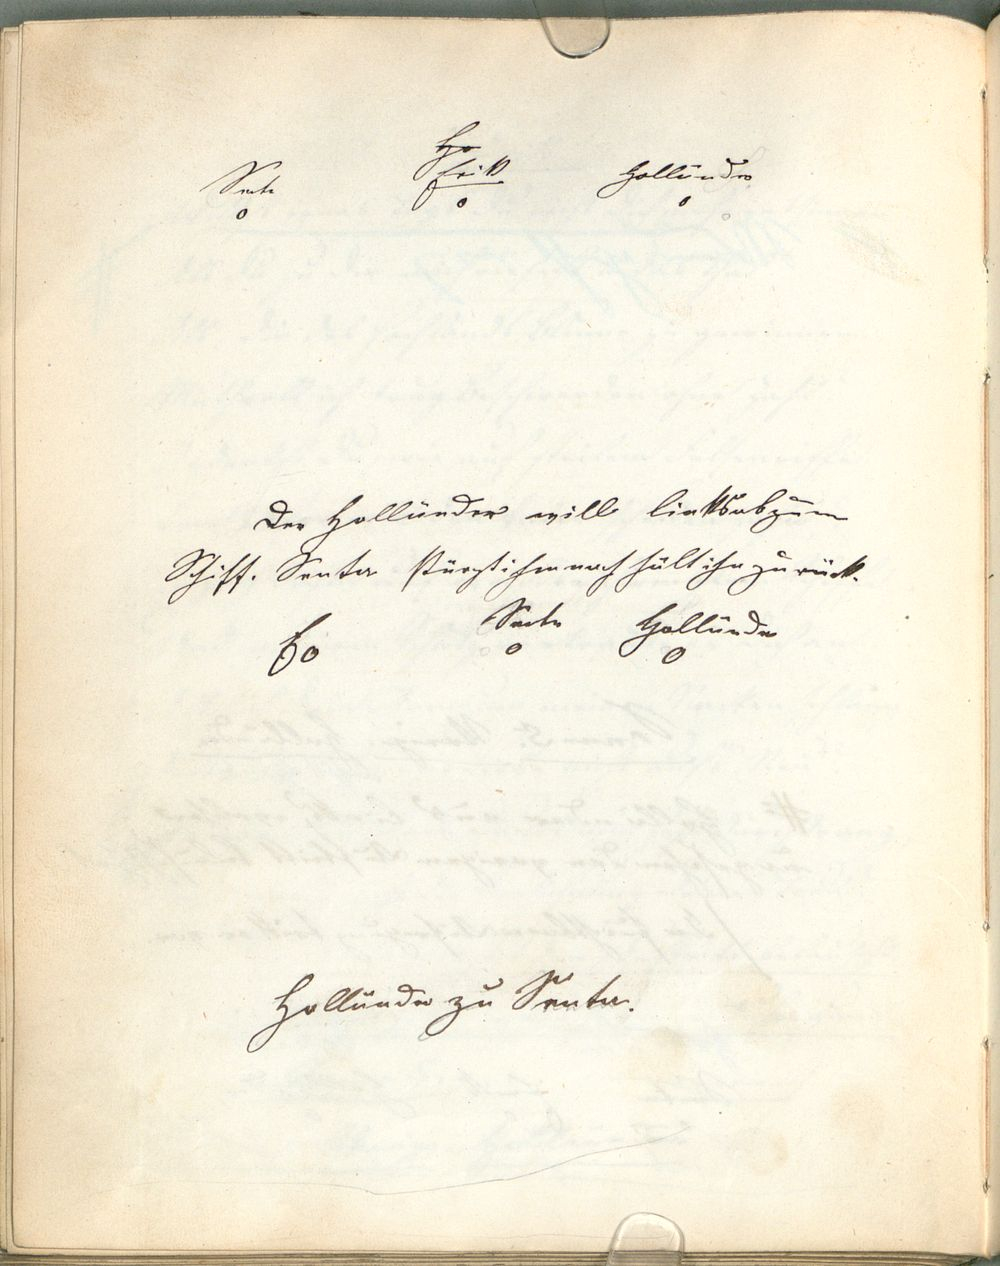 Senta Erik Holländer
o o o
Der Holländer will links ab zum
Schiff. Senta stürzt ihm nach hält ihn zurück.
E Senta Holländer
o o o
Holländer zu Senta.